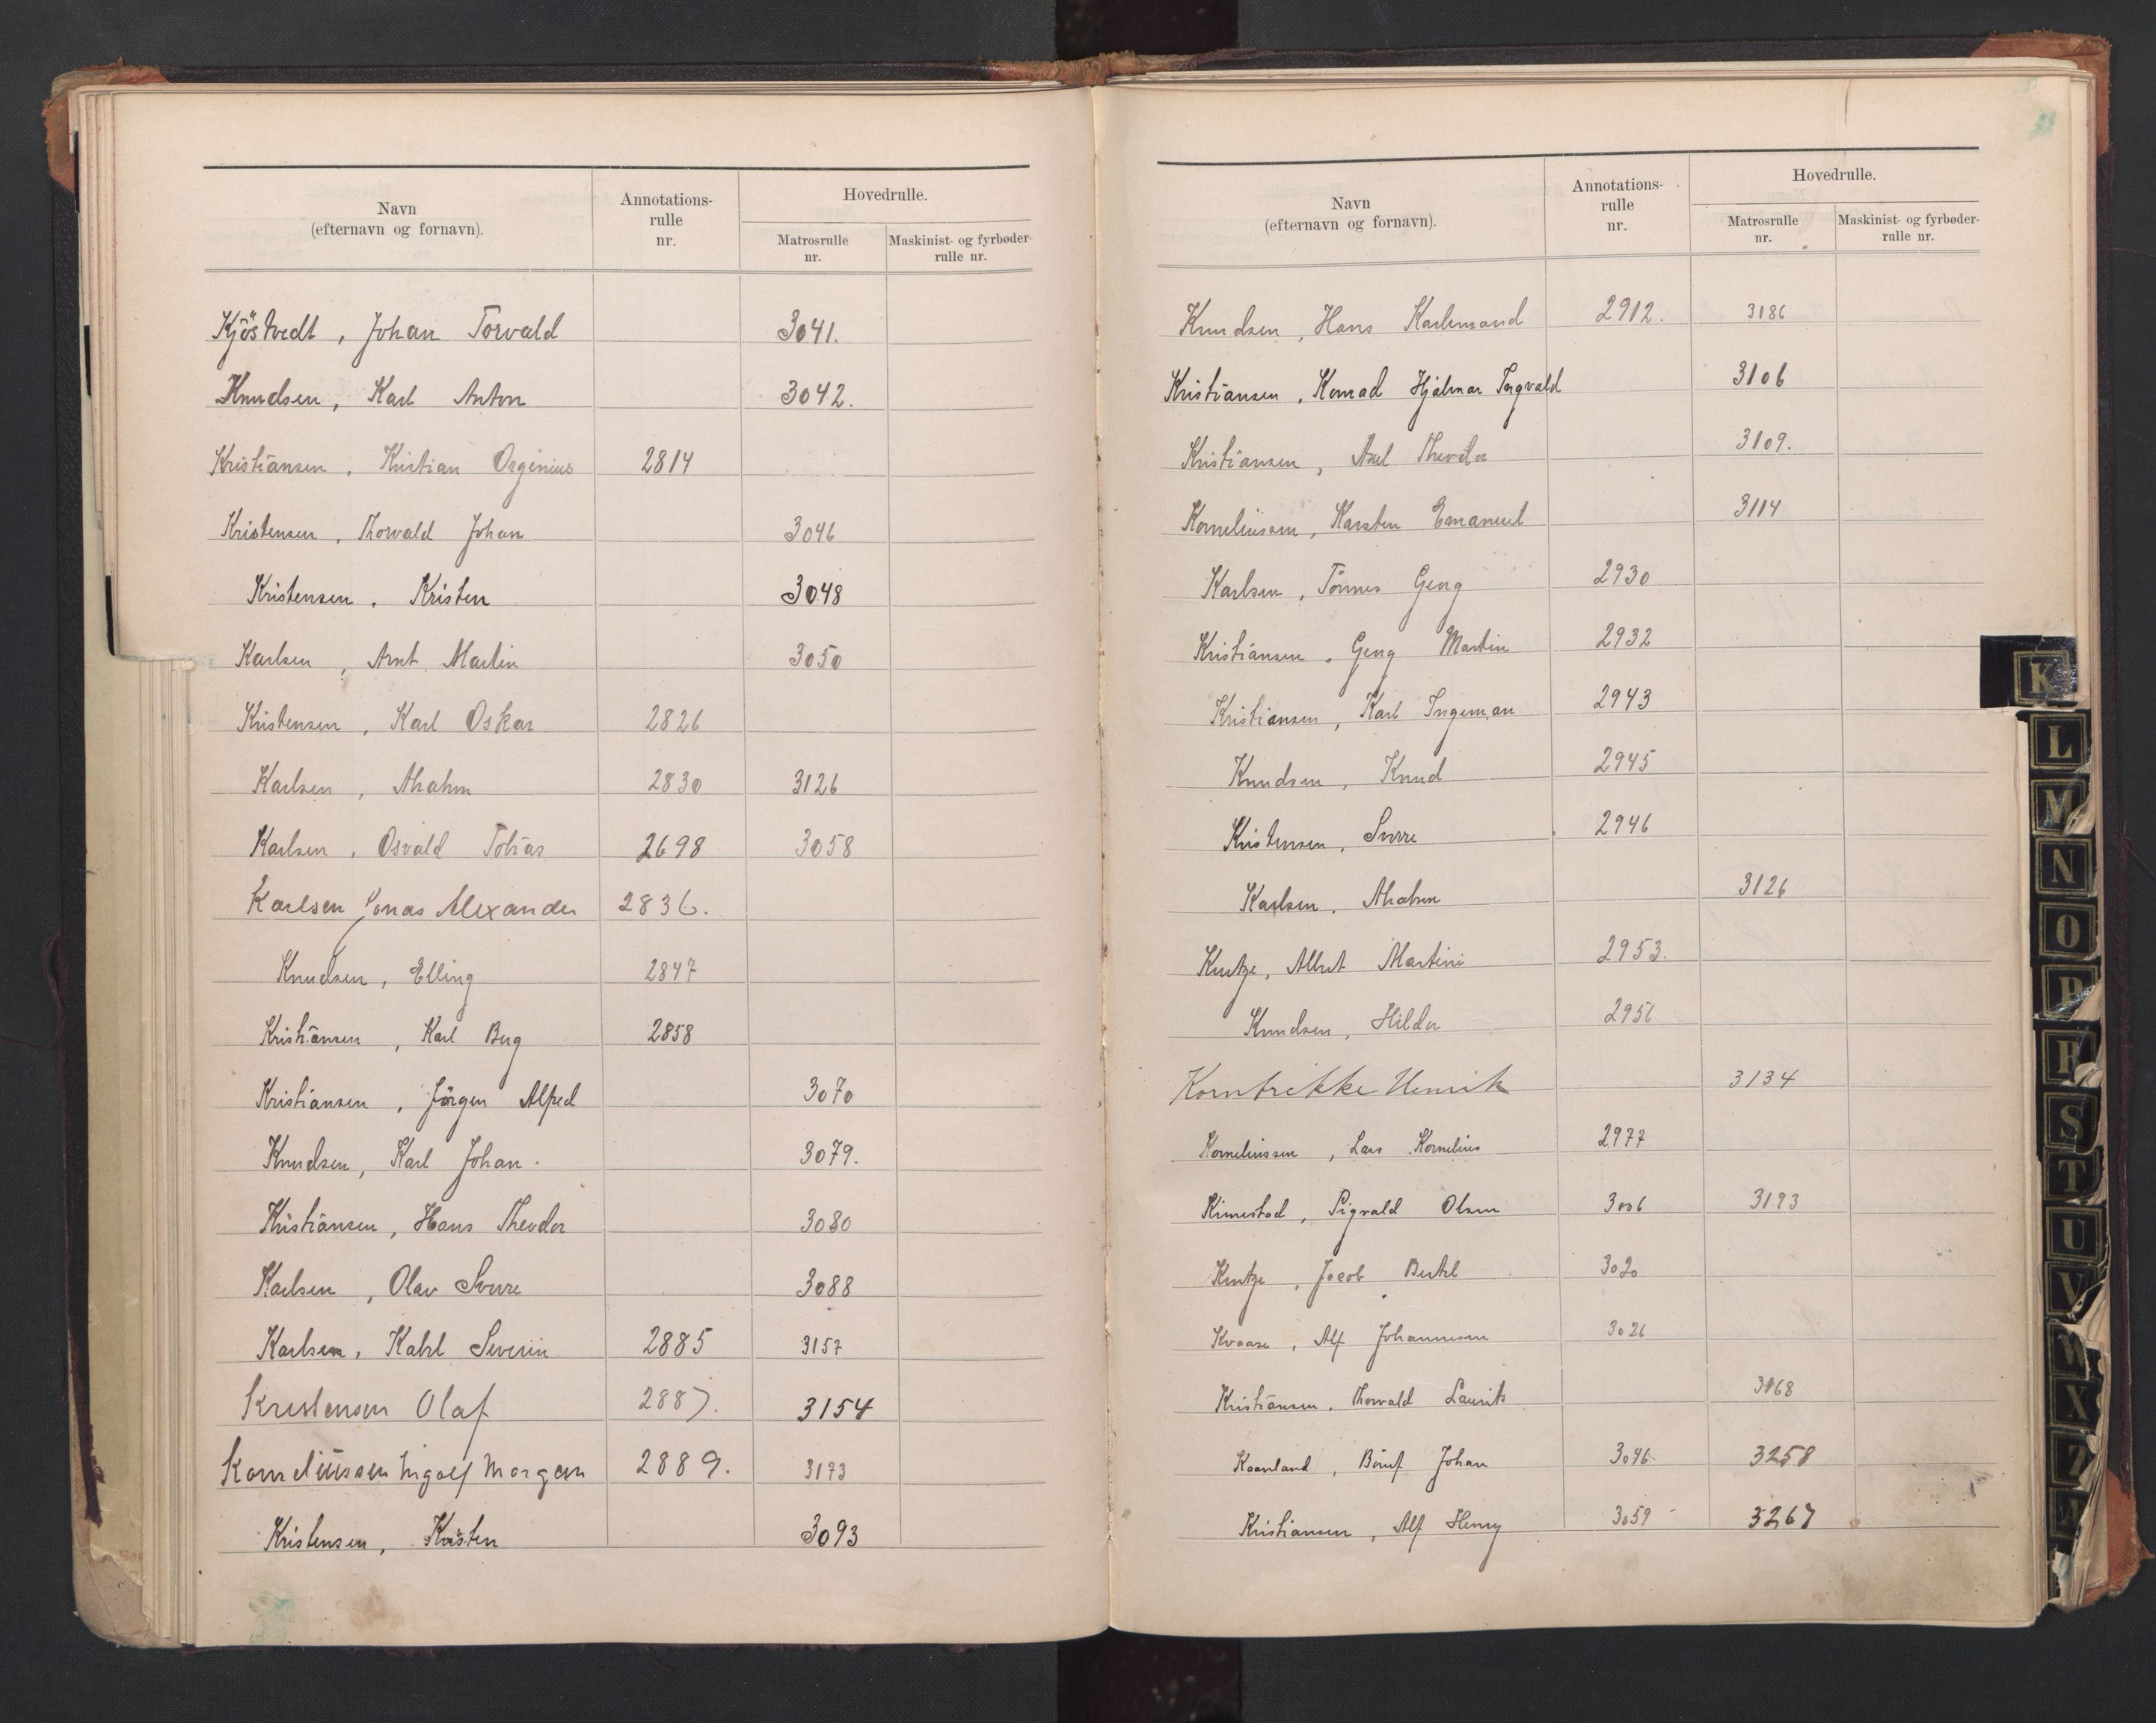 Navn
(efternavn og fornavn).
Annotations-
rulle
nr.
Hovedrulle.
Matrosrulle
nr.
Maskinist- og fyrbøder-
rulle nr.
Kjöstvedt, Johan Torvald 3041.
Knudsen, Karl Anton 3042.
Kristiansen, Kristian Orgenius 2814
Kristensen, Thorvald Johan 3046
Kristensen, Kristen 3048
Karlsen, Arnt Martin 3050
Kristensen, Karl Oskar 2826
Karlsen, Abahm 2830 3126
Karlsen, Osvald Tobias 2698 3058
Karlsen Jonas Alexander 2836.
Knudsen, Elling 2847
Kristiansen, Karl Berg 2858
Kristiansen, Jörgen Alfred 3070
Knudsen, Karl Johan. 3079.
Kristiansen, Hans Theodor 3080
Karlsen, Olav Sverre 3088
Karlsen, Kahl Severin 2885 3157
Kristensen Olaf 2887. 3154
Korneliussen Ingolf Morgan 2889. 3173
Kristensen, Karsten 3093
Navn
(efternavn og fornavn).
Annotations-
rulle
nr.
Hovedrulle.
Matrosrulle
nr.
Maskinist- og fyrbøder-
rulle nr.
Knudsen, Hans Karlemand 2912. 3186
Kristiansen, Konrad Hjalmar Torgvald 3106
Kristiansen, Axel Theodor 3109.
Korneliussen, Karsten Emanuel 3114
Karlsen, Tönnes Georg 2930
Kristiansen, Georg Martin 2932
Kristiansen, Karl Ingeman 2943
Knudsen, Knud 2945
Kristensen, Sverre 2946
Karlsen, Abahm 3126
Kuntze, Albert Martini 2953.
Knudsen, Hildor 2956
Korntrekke Henrik 3134
Korneliussen, Lars Kornelius 2977
Kimestad, Sigvald Olsen 3006 3193
Kuntze, Jacob Bertel 3020
Kvaase, Alf Johannesen 3026
Kristiansen, Thorvald Laurits 3168
Kaanland, Johan 3046 3258
Kristiansen, Alf Henry 3059 3267
K
L
M
N
O
P
R
S
T
U
V
W
X
Z